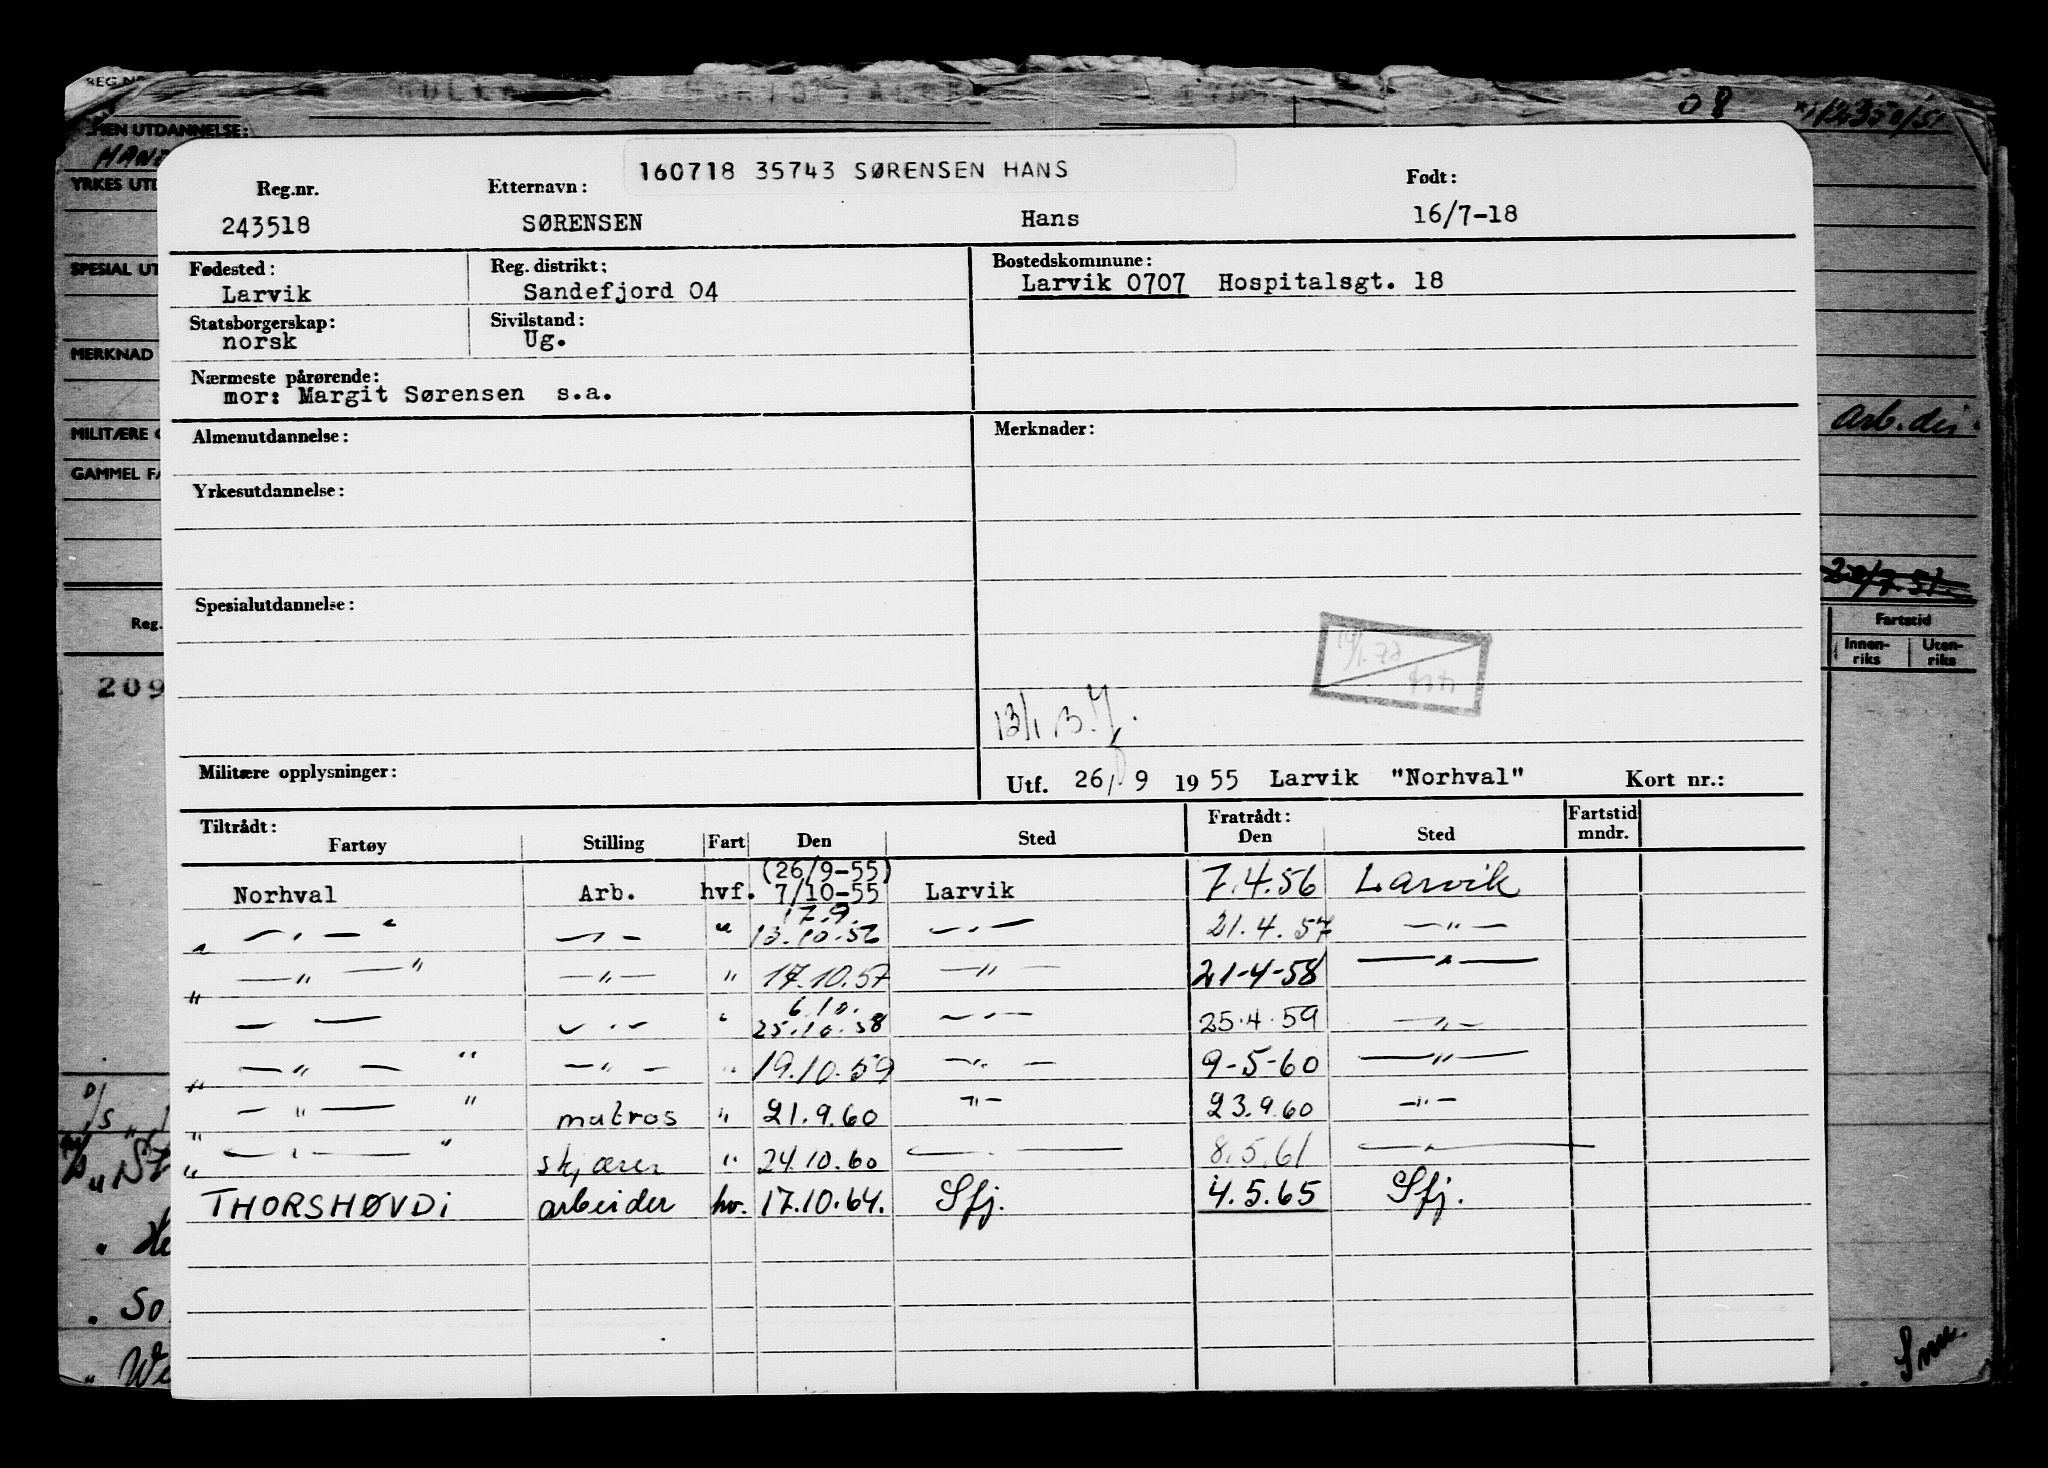 REG.NR
08
1/12350/51
MEN UTDANNELSE:
HAND
YRKES UTD
SPESIAL UT
MERKNAD
MILITÆRE O
GAMMEL FA
Reg.
209
arb. dis.
20/7 51
Fartstid
Innen-
riks
Uten-
riks
160718 35743 SØRENSEN HANS
Reg.nr. Etternavn: Født:
243518 SØRENSEN Hans 16/7-18
Fødested: Reg. distrikt: Bostedskommune:
Larvik Sandefjord 04 Larvik 0707 Hospitalsgt. 18
Statsborgerskap: Sivilstand:
norsk Ug.
Nærmeste pårørende:
mor: Margit Sørensen s.a.
Almenutdannelse: Merknader:
Yrkesutdannelse:
Spesialutdannelse:
13/1
Militære opplysninger: Utf. 26/9 1955 Larvik "Norhval" Kort nr.:
Tiltrådt: Fratrådt: Fartstid
Fartøy Stilling Fart Den Sted Den Sted mndr.
(26/9-55)
Norhval Arb. hvf. 7/10-55 Larvik 7.4.56 Larvik
17.9.
" — " — " — " — " 13.10.56 — " — 21.4.57 — " —
" — " — " — " — " 17.10.57 — " — 21-4-58 — " —
6.10.
— — — " — " 25.10.58 — " — 25.4.59 — " —
" — " — " — " — " 19.10.59 — " — 9-5-60 — " —
" — " — " matros " 21.9.60 — " — 23.9.60 — " —
" — " — " skjærer " 24.10.60 — " — 8.5.61 — " —
THORSHØVDi arbeider hv. 17.10.64. Sfj. 4.5.65 Sfj.
D/S
So
We